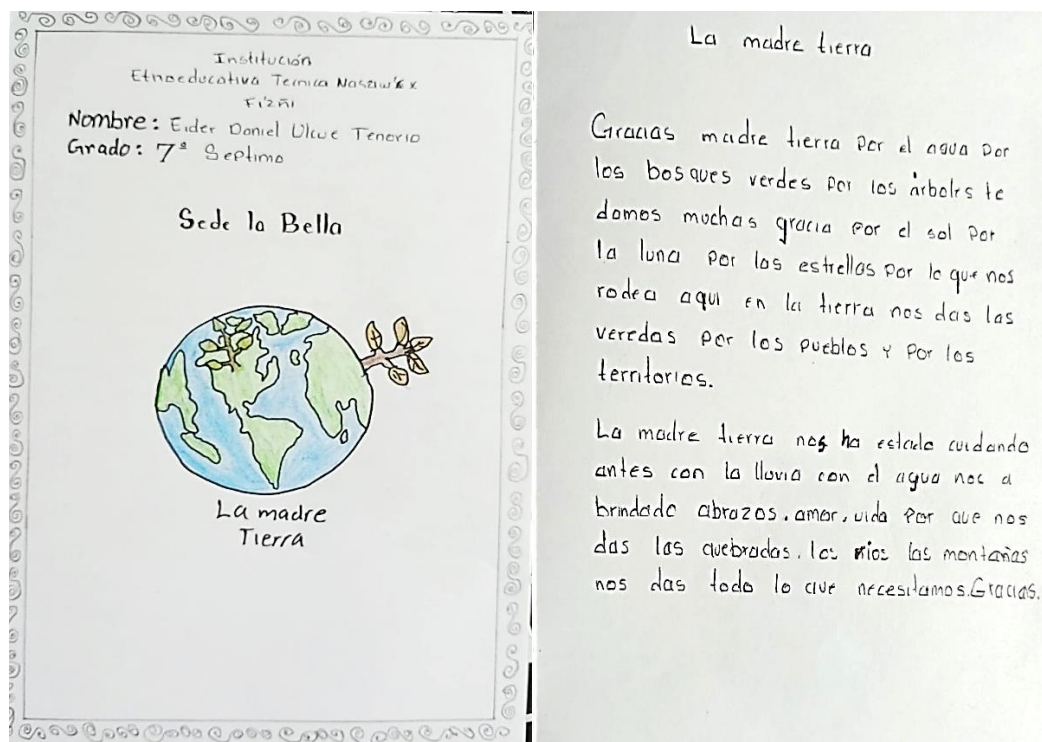 Institución
Etnoeducativa Tecnica Nasaw'ēx
Fi'zñi
Nombre: Eider Daniel Ulcue Tenorio
Grado: 7ª Septimo
Sede la Bella
La madre
Tierra
La madre tierra
Gracias madre tierra por el agua por
los bosques verdes por los árboles te
damos muchas gracia por el sol por
la luna por las estrellas por lo que nos
rodea aqui en la tierra nos das las
veredas por los pueblos y por los
territorios.
La madre tierra nos ha estado cuidando
antes con la lluvia con el agua nos a
brindado abrazos, amor, vida por que nos
das las quebradas, los rios las montañas
nos das todo lo que necesitamos. Gracias.